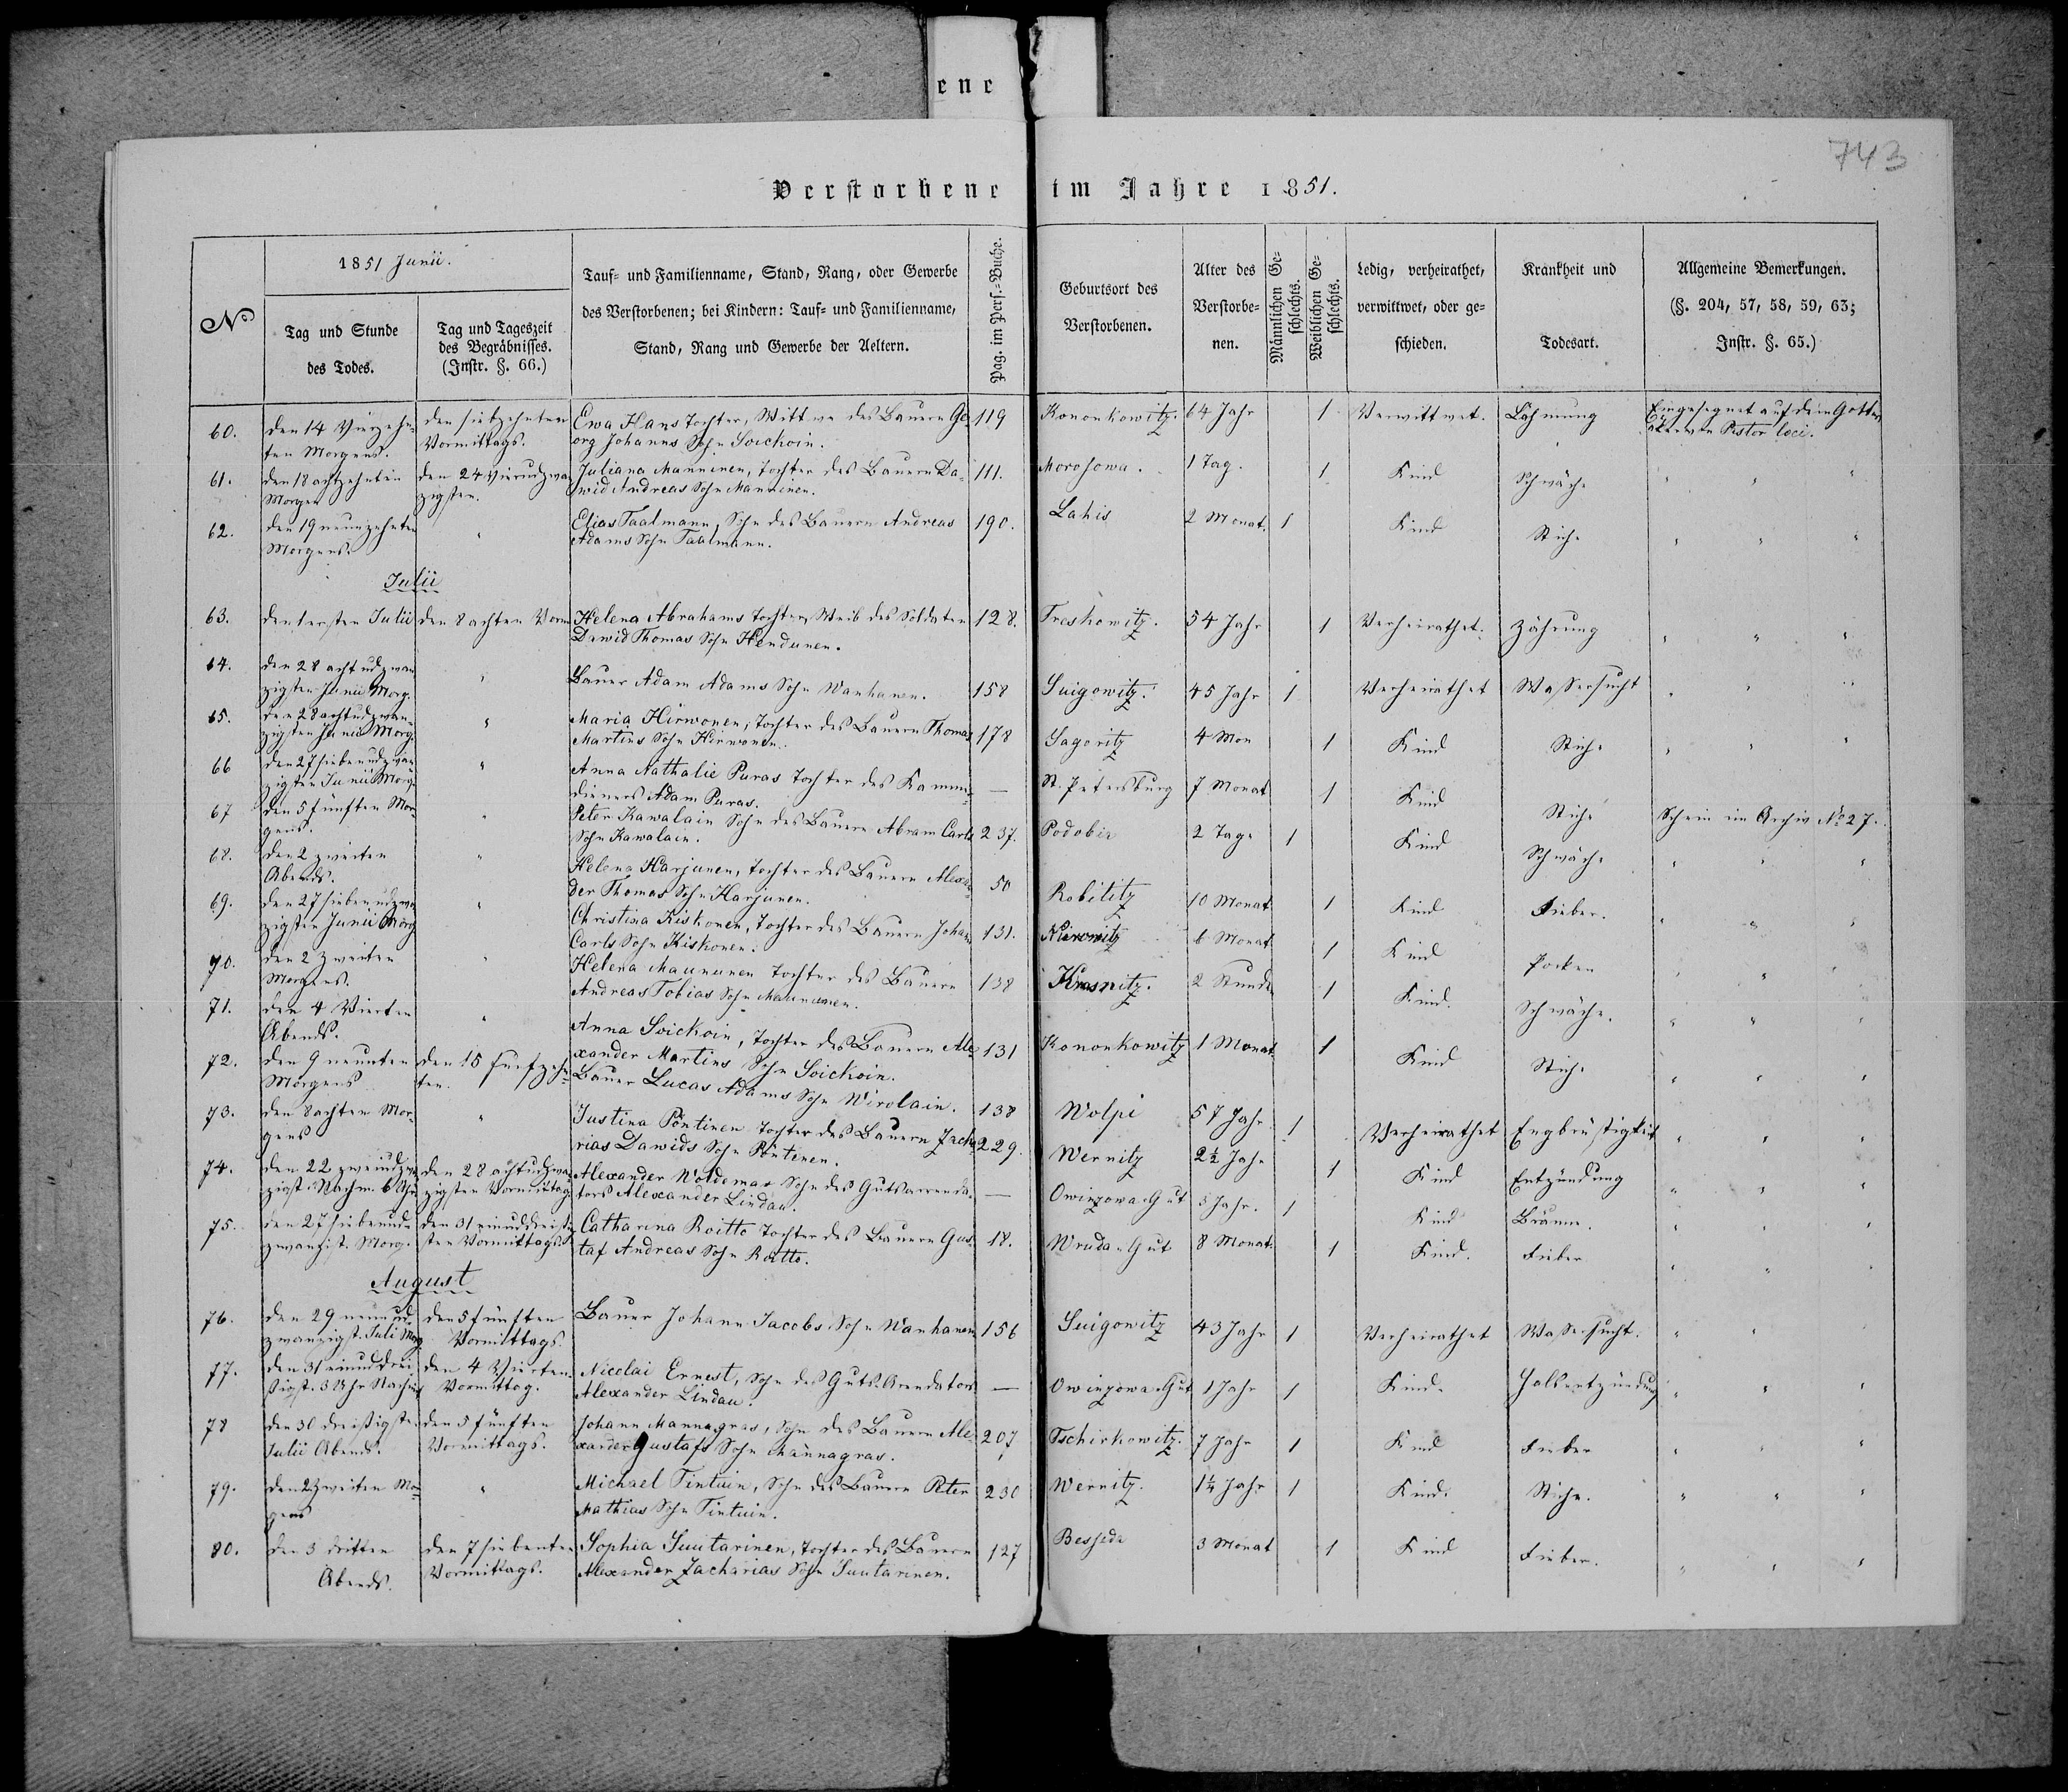 ene
743
Verstorbene im Jahre 1851.
№
1851 Junii.
Tag und Stunde
des Todes.
Tag und Tageszeit
des Begräbnisses.
(Instr. §. 66.)
Tauf- und Familienname, Stand, Rang, oder Gewerbe
des Verstorbenen; bei Kindern: Tauf- und Familienname,
Stand, Rang und Gewerbe der Aeltern.
Pag. im Pers.-Buche.
Geburtsort des
Verstorbenen.
Alter des
Verstorbe-
nen.
Männlichen Ge-
schlechts.
Weiblichen Ge-
schlechts.
Ledig, verheirathet,
verwittwet, oder ge-
schieden.
Krankheit und
Todesart.
Allgemeine Bemerkungen.
(§. 204, 57, 58, 59, 63;
Instr. §. 65.)
60. den 14 Vierzehn- den siebzehnten Ewa Hans Tochter, Wittwe des Bauern Ge- 119 Kononkowitz. 64 Jahr 1 Verwittwet. Lähmung Eingesegnet auf dem Gottes
ten Morgens. Vormittags. org Johanns Sohn Soickoin. acker von Pastor loci.
61. den 18 achtzehnten den 24 vierundzwan Juliana Manninen, Tochter des Bauern Da- 111. Morosowa. 1 Tag. 1 Kind Schwäche " " "
Morgen zigsten. wid Andreas Sohn Manninen.
62. den 19 neunzehnten " Elias Taalmann, Sohn des Bauern Andreas 190. Lahis 2 Monat. 1 Kind Stiche " " "
Morgens. Adams Sohn Taalmann.
Julii
63. den 1 ersten Julii den 8 achten Vorm Helena Abrahams Tochter, Weib des Soldaten 128. Treskowitz. 54 Jahr 1 Verheirathet. Zährung " " "
Dawid Thomas Sohn Hendunen.
64. den 28 achtundzwan " Bauer Adam Adams Sohn Wanhanen. 158 Suigowitz. 45 Jahr 1 Verheirathet Wassersucht " " "
zigsten Junii Morg.
65. den 28 achtundzwan- " Maria Hirwonen, Tochter des Bauern Thomas 178 Sagoritz 4 Mon 1 Kind Stiche " " "
zigsten Junii Morg. Martins Sohn Hirwonen.
66 den 27 siebenundzwan " Anna Nathalie Puras Tochter des Kammer- — St. Petersburg 7 Monat 1 Kind Stiche Schein im Archiv No 27.
zigsten Junii Morg. dieners Adam Puras.
67 den 5 fünften Mor- " Peter Kawalain Sohn des Bauern Abram Carls 237. Podobie 2 Tage 1 Kind Schwäche " " "
gens. Sohn Kawalain.
68. den 2 zweiten " Helena Harjunen, Tochter des Bauern Alexan- 50 Robititz 10 Monat 1 Kind Fieber. " " "
Abends. der Thomas Sohn Harjunen.
69. den 27 siebenundzwan " Christina Kiskonen, Tochter des Bauern Johann 131. 6 Monat 1 Kind Pocken " " "
zigsten Junii Morg Carls Sohn Kiskonen.
70. den 2 zweiten " Helena Maununen Tochter des Bauern 138 Krasnitz. 2 Stunden 1 Kind. Schwäche. " " "
Morgens. Andreas Tobias Sohn Maununen.
71. den 4 Vierten " Anna Soickoin, Tochter des Bauern Ale- 131 Kononkowitz 1 Monat 1 Kind Stiche " " "
Abends. xander Martins Sohn Soickoin.
72. den 9 neunten den 15 fünfzehn- Bauer Lucas Adams Sohn Wirolain. 138 Wolpi 57 Jahr 1 Verheirathet Engbrüstigkeit " " "
Morgens ten.
73. den 8 achten Mor- " Justina Pöntinen Tochter des Bauern Zacha 229. Wernitz 2½ Jahr 1 Kind Entzündung " " "
gens rias Dawids Sohn Pöntinen.
74. den 22 zweiundzwan den 28 achtundzwan Alexander Woldemar Sohn des Gutsarrenda- — Owinzowa Gut 3 Jahr. 1 Kind Bräune. " " "
zigst. Nachm. 6 Uhr zigsten Vormittag tors Alexander Lindau.
75. den 27 siebenund- den 31 einunddreissig Catharina Roitto Tochter des Bauern Gus- 18. Wruda Gut 8 Monat. 1 Kind. Fieber " " "
zwanzigst. Morg. sten Vormittags. taf Andreas Sohn Roitto.
August
76. den 29 neunund- den 5 fünften Bauer Johann Jacobs Sohn Wanhanen 156 Suigowitz 43 Jahr 1 Verheirathet Wassersucht. " " "
zwanzigst. Juli Morg Vormittags.
77. den 31 einunddrei- den 4 Vierten Nicolai Ernest, Sohn des Guts-Arendators — Owinzowa Gut 1 Jahr 1 Kind. Halsentzündung " " "
ssigst. 3 Uhr Nachm Vormittag. Alexander Lindau.
78 den 30 dreissigsten den 5 fünften Johann Mannagras, Sohn des Bauern Ale- 207 Tschirkowitz. 7 Jahr 1 Kind Fieber " " "
Julii Abend. Vormittags. xander Gustafs Sohn Mannagras.
79. den 2 zweiten Mor- " Michael Tintuin, Sohn des Bauern Peter 230 Wernitz. 1¼ Jahr 1 Kind. Stiche. " " "
gens Mathias Sohn Tintuin.
80. den 3 dritten den 7 siebenten Sophia Suutarinen, Tochter des Bauern 127 Bessjeda 3 Monat 1 Kind Fieber. " " "
Abends. Vormittags. Alexander Zacharias Sohn Suutarinen.